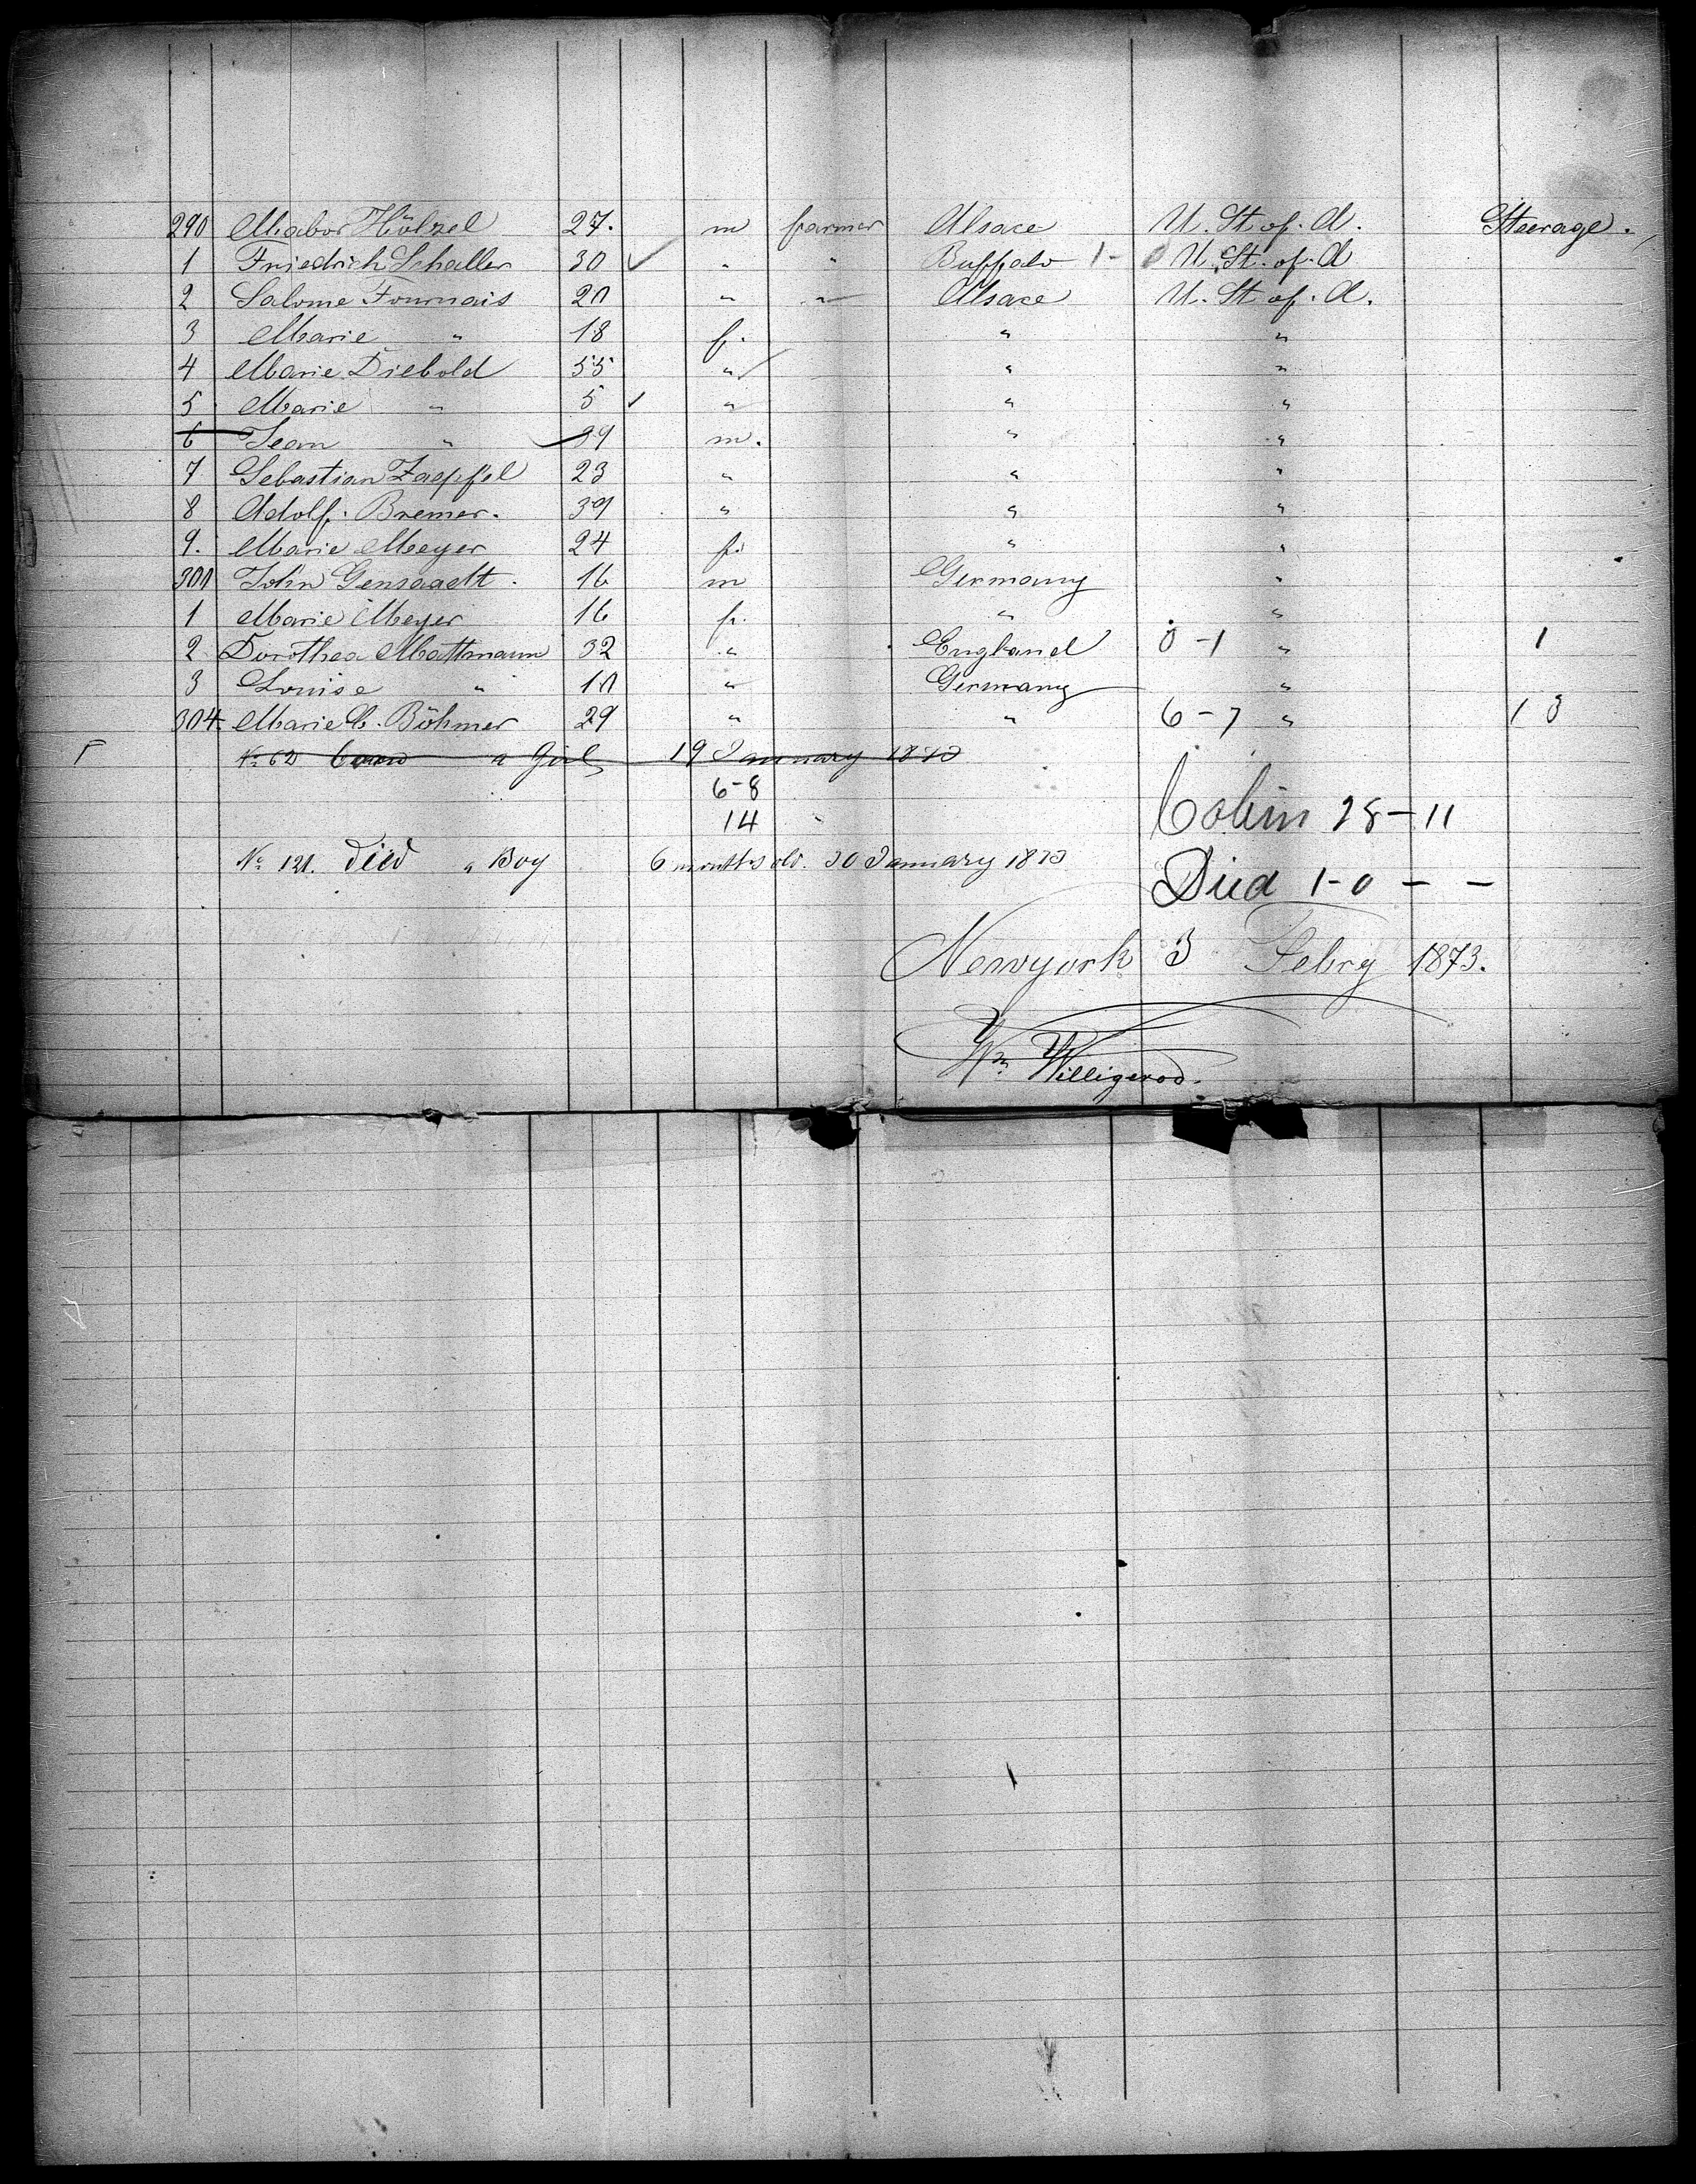 290 Mabor Hölzel 27. m farmer Alsace U. St of. A. Steerage.
1 Friedrich Schaller 30 ✓ " " Buffalo 1- 0 U. St. of. A
2 Salome Fournais 20 " " Alsace U. St of. A.
3 Marie " 18 f. " "
4 Marie Diebold 55 " " "
5 Marie " 5 ✓ " " "
6 Jean " 39 m. " "
7 Sebastian Zaepfel 23 " " "
8 Adolf. Bremer. 39 " " "
9. Marie Meyer 24 f. " "
300 John 16 m Germany "
1 Marie Meyer 16 f. " "
2 Dorothea Mattmann 32 " England 0-1 " 1
3 Louise " 10 " Germany "
304 Marie C. Böhmer 29 " " 6-7 " 13
No 62 born a Girl 19 January 1873
6-8
14
Cabin 28-11
No 121. Died a Boy 6 months old. 30 January 1873
Died 1-0 - -
Newyork 3 Febry 1873.
Wm Willigerod.